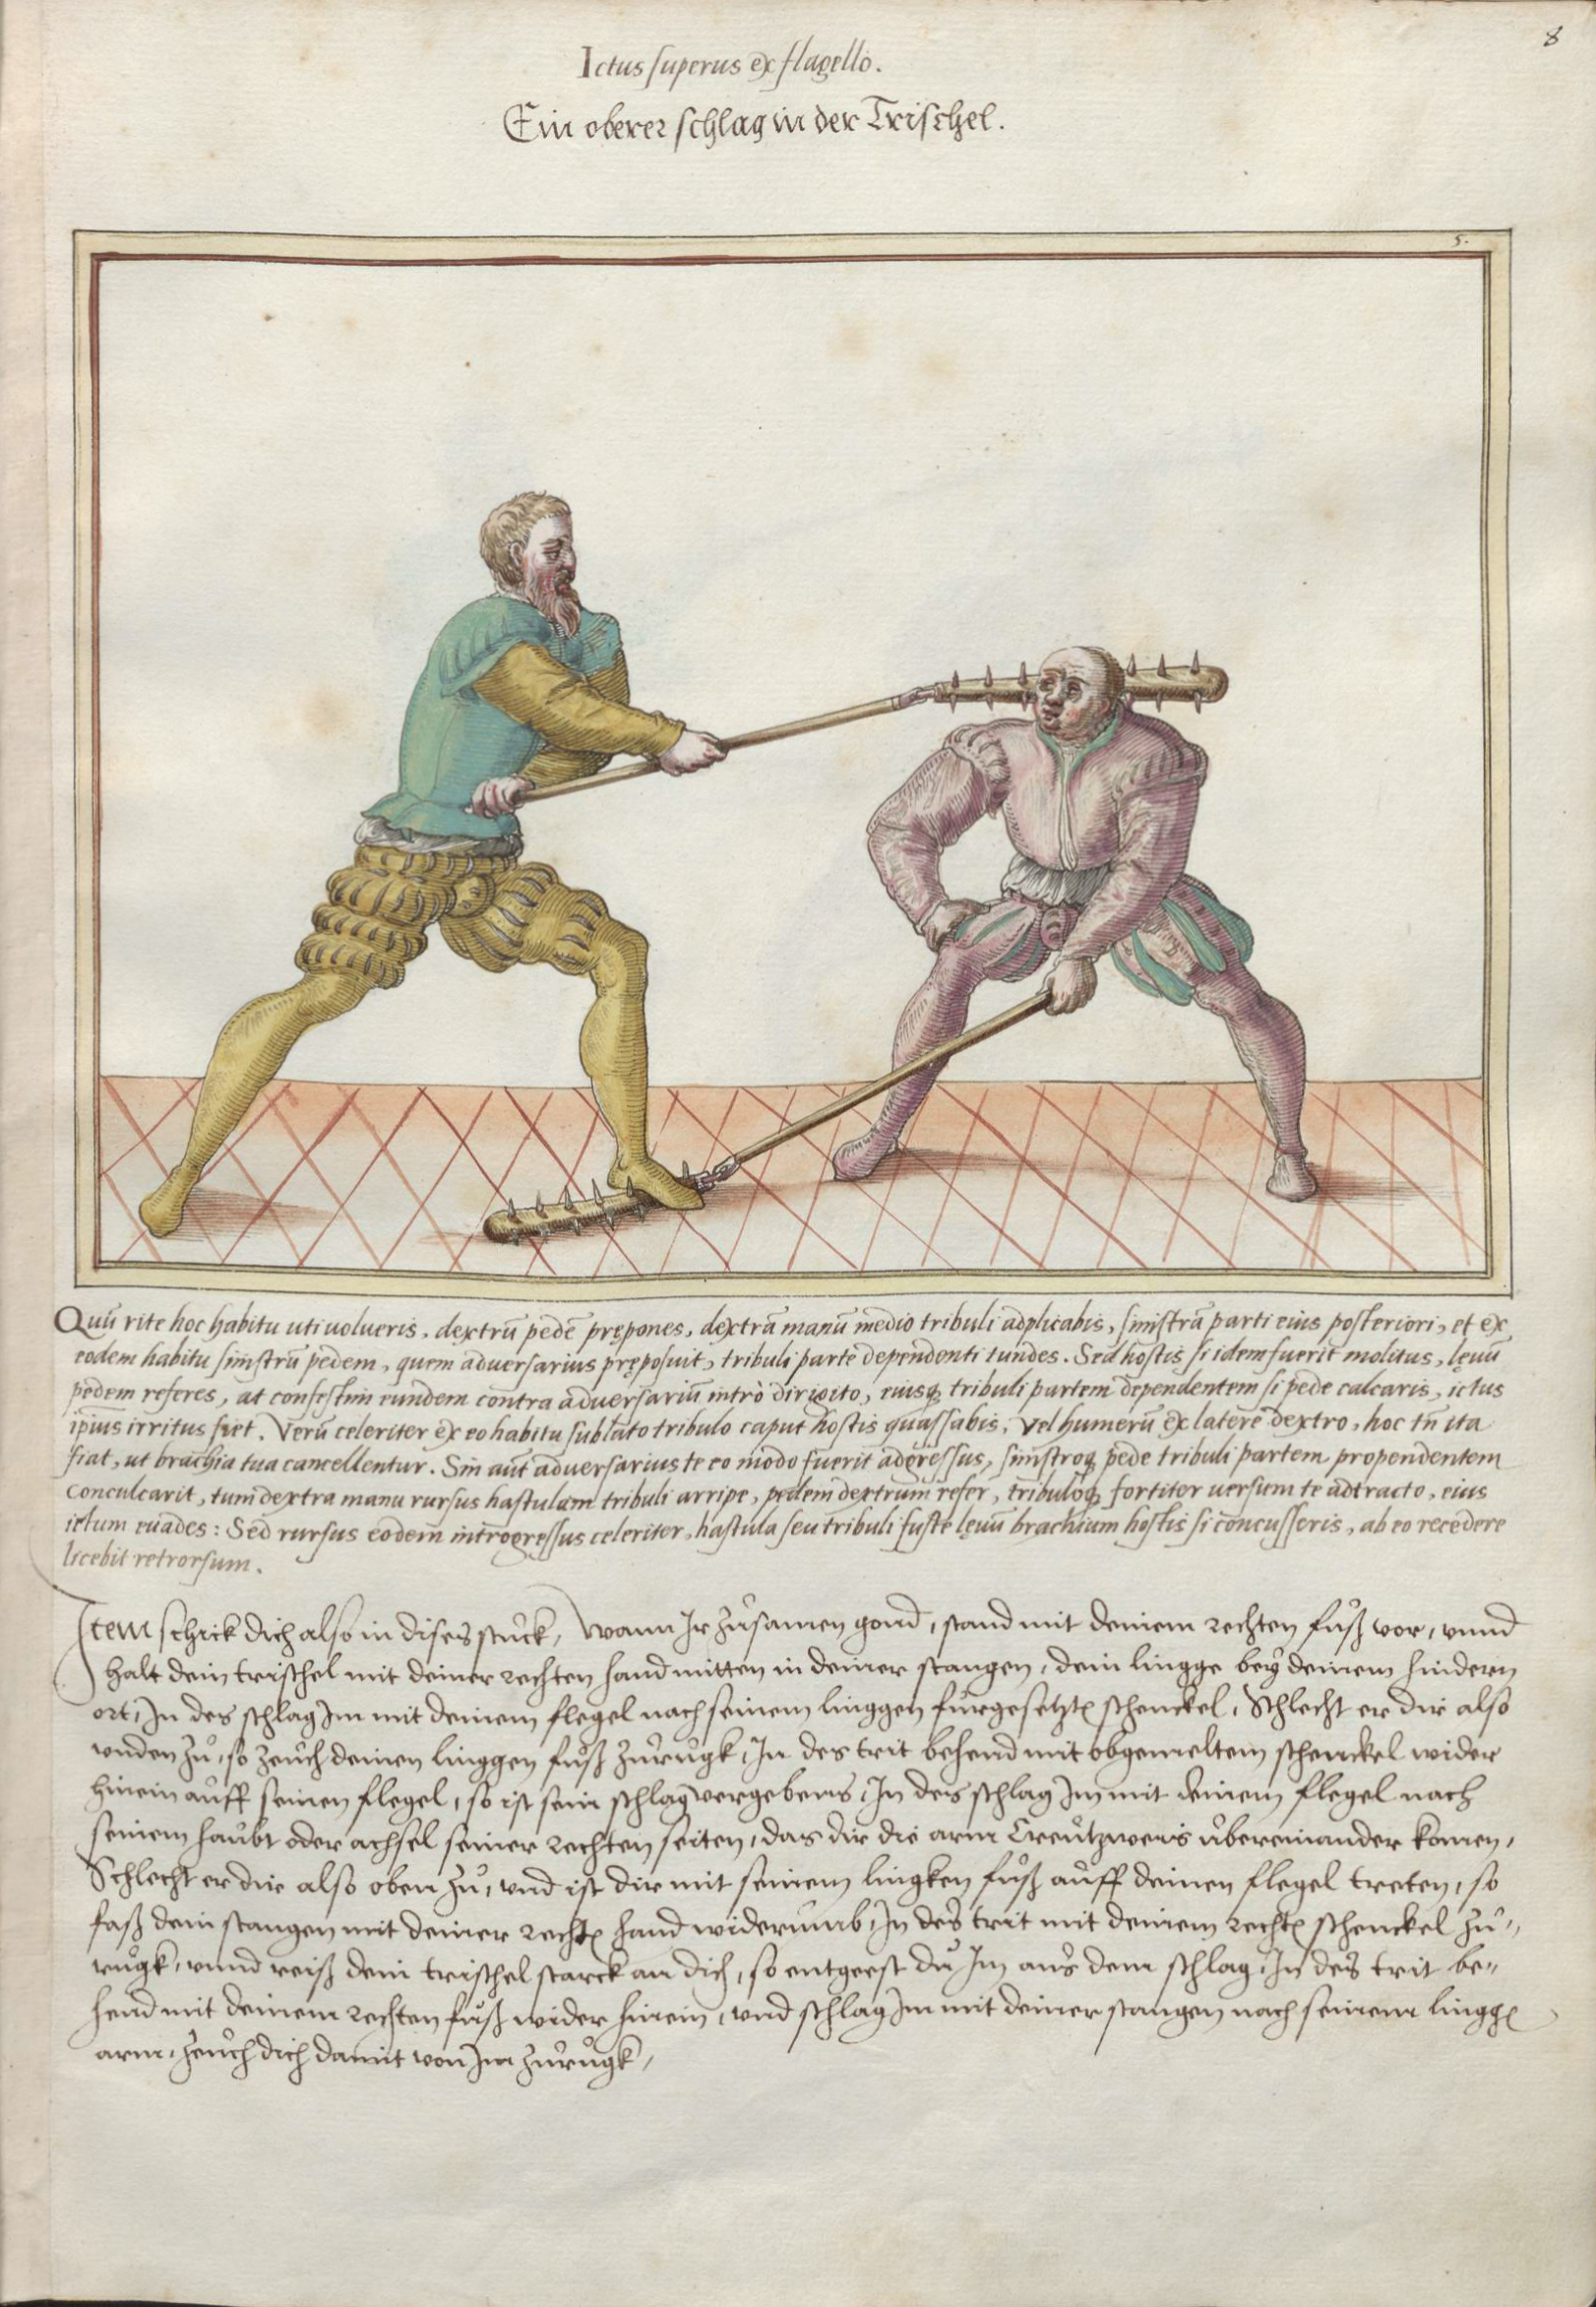 8
Ictus superus ex flagello.
Ein oberer schlag in der Trischel.
5.
Quũ rite hoc habitu uti uolueris, dextrũ pedẽ prępones, dextrã manũ medio tribuli adplicabis, sinistrã parti eius posteriori, et ex
eodem habitu sinistrũ pedem, quem aduersarius pręposuit, tribuli parte dependenti tundes. Sed hostis si idem fuerit molitus, lęuũ
pedem referes, at confestim eundem contra aduersariũ intrò dirigito, eiusq́ tribuli partem dependentem si pede calcaris, ictus
ipsius irritus fiet. Verũ celeriter ex eo habitu sublato tribulo caput hostis quassabis, vel humerũ ex latere dextro, hoc tñ ita
fiat, ut brachia tua cancellentur. Sin aũt aduersarius te eo modo fuerit adgressus, sinistroq́ pede tribuli partem propendentem
conculcarit, tum dextra manu rursus hastulam tribuli arripe, pedem dextrum refer, tribuloq́ fortiter uersum te adtracto, eius
ictum euades: Sed rursus eodem introgressus celeriter, hastula seu tribuli fuste lęuũ brachium hostis si concusseris, ab eo recedere
licebit retrorsum.
Item schick dich also in dises stuck, Wann Ir zůsamen gond, stand mit deinem rechten fůß vor, vnnd
halt dein trischel mit deiner rechten hand mitten in deiner stangen, dein lingge beÿ deinem hindern
ort, In des schlag Im mit deinem flegel nach seinem linggen fürgesetztẽ schenckel, Schlecht er dir also
vnden zů, so zeüch deinen linggen fůß zůrugk, In des trit behend mit obgemeltem schenckel wider
hinein auff seinen flegel, so ist sein schlag vergebens, In des schlag Im mit deinem flegel nach
seinem haubt oder achsel seiner rechten seiten, das dir die arm Creützweis übereinander komen,
Schlecht er dir also oben zů, vnd ist dir mit seinem lingken fůß auff deinen flegel treten, so
faß dein stangen mit deiner rechtẽ hand widerumb, In des trit mit deinem rechtẽ schenckel zů,,
rugk, vnnd reiß dein trischel starck an dich, so entgeest du Im aus dem schlag, In des trit be,,
hend mit deinem rechten fůß wider hinein, vnd schlag Im mit deiner stangen nach seinem linggẽ
arm, zeüch dich damit von Im zůrugk,